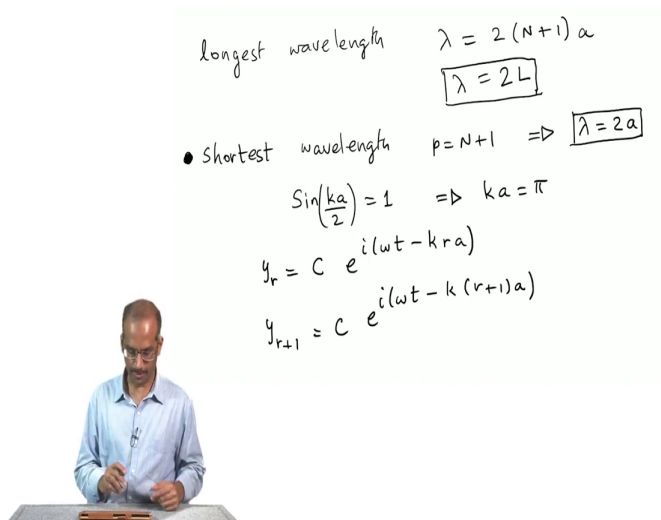 longest wavelength λ = 2(N+1)a
λ = 2L
• Shortest wavelength p=N+1 ⇒ λ=2a
Sin(ka/2) = 1 ⇒ ka = π
y_r = C e^{i(ωt − kra)}
y_{r+1} = C e^{i(ωt − k(r+1)a)}